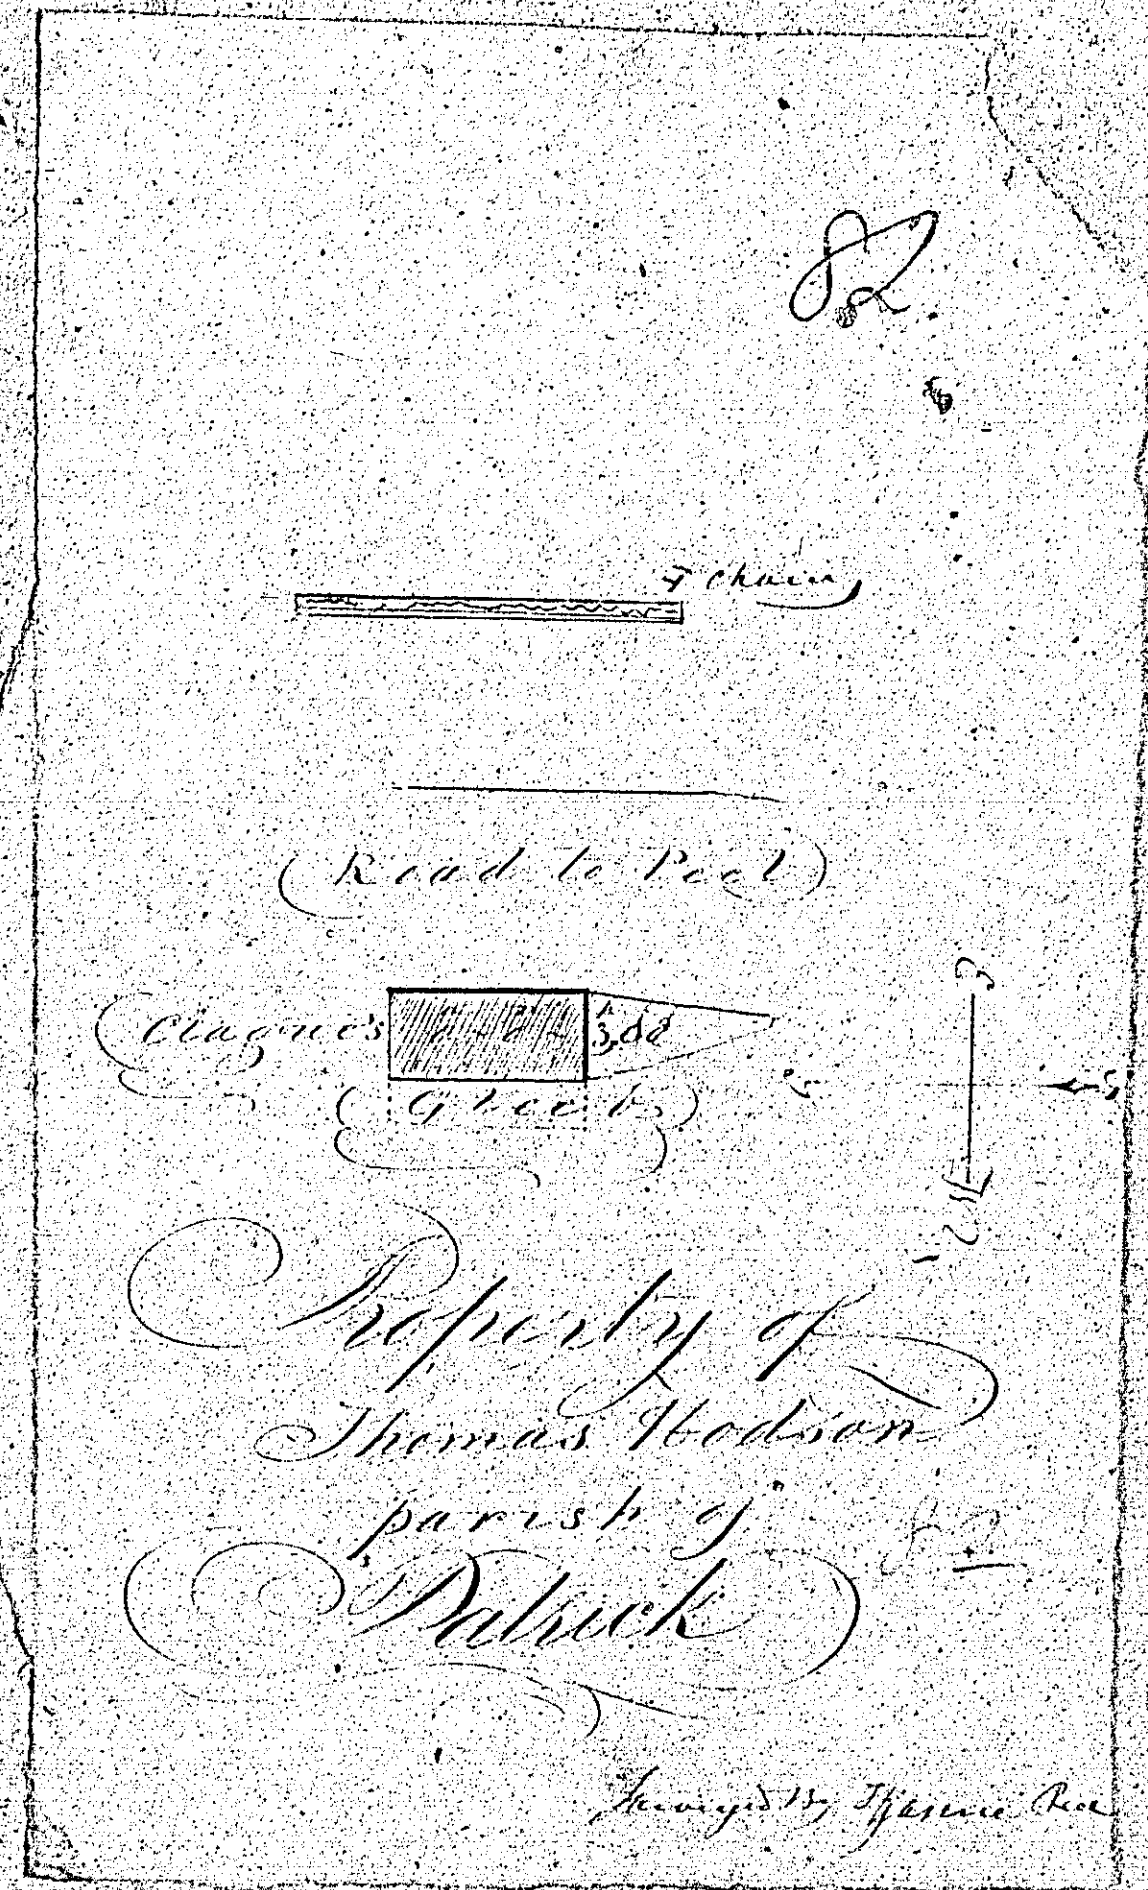 82
chain
(Road to Peel)
Clague's
(Gleeb)
Property of
Thomas Hodson
parish of
Patrick
82
Surveyed By